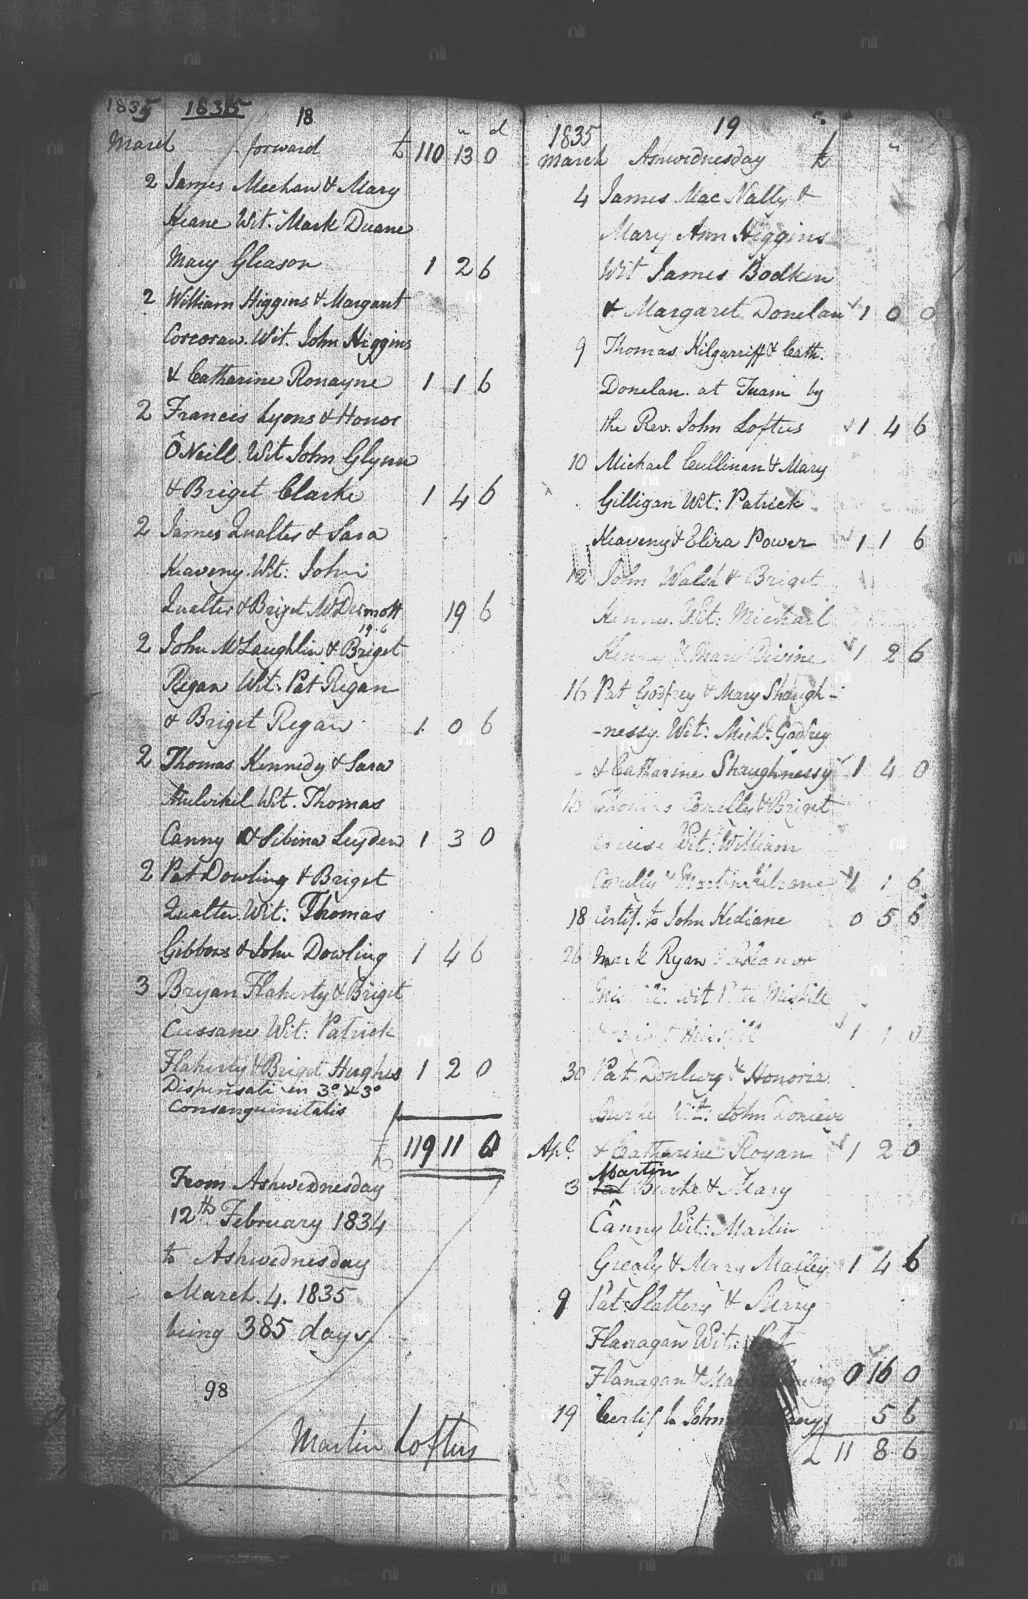 1835 1835 18
March forward £ 110 13 0
2 James Meehan & Mary
Keane Wit. Mark Duane
Mary Gleason 1 2 6
2 William Higgins & Margaret
Corcoran. Wit. John Higgins
& Catharine Ronayne 1 1 6
2 Francis Lyons & Honor
O'Neill. Wit John Glynn
& Briget Clarke 1 4 6
2 James Qualter & Sara
Heaveny. Wit: John
Qualter & Briget McDermott 19 6
19.6
2 John McLaughlin & Briget
Regan Wit: Pat Regan
& Briget Regan 1 0 6
2 Thomas Kennedy & Sara
Mulvihil Wit. Thomas
Canny & Sibina Leyden 1 3 0
2 Pat Dowling & Briget
Qualter. Wit: Thomas
Gibbons & John Dowling 1 4 6
3 Bryan Flaherty & Briget
Cussane Wit: Patrick
Flaherty & Briget Hughes 1 2 0
Dispensati in 3° & 3°
Consanguinitatis
£ 119 11 6
From Ashwednesday
12th February 1834
to Ashwednesday
March. 4. 1835
being 385 days
98
Martin Loftus
1835 19
March Ashwednesday £
4 James Mac Nally &
Mary Ann Higgins
Wit James Bodken
& Margaret Donelan 1 0 0
9 Thomas Kilgarriff & Cath.
Donelan. at Tuam by
the Rev. John Loftus 1 4 6
10 Michael Cullinan & Mary
Gilligan Wit: Patrick
Heaveny & Eliza Power 1 1 6
12 John Walsh & Briget
Kenny. Wit: Michael
Kenny & Mary Divine 1 2 6
16 Pat Godfrey & Mary Shaugh-
-nessy Wit: Michl. Godfrey
& Catharine Shaughnessy 1 4 0
16 Thomas Conelly & Briget
Wit: William
Conelly & Martin 1 1 6
18 Certif. to John Kediane 0 5 6
26 Mark Ryan & Eleanor
Wit Miskill
1 1 0
30 Pat Donlevy & Honoria
Burke Wit: John Donlevy
Apl. & Catharine Royan 1 2 0
Martin
3 Burke & Mary
Canny Wit: Martin
Grealy & Mary Malley 1 4 6
9 Pat Slattery & Mary
Flanagan Wit: Pat
Flanagan & 0 16 0
19 Certif to John 5 6
£ 11 8 6